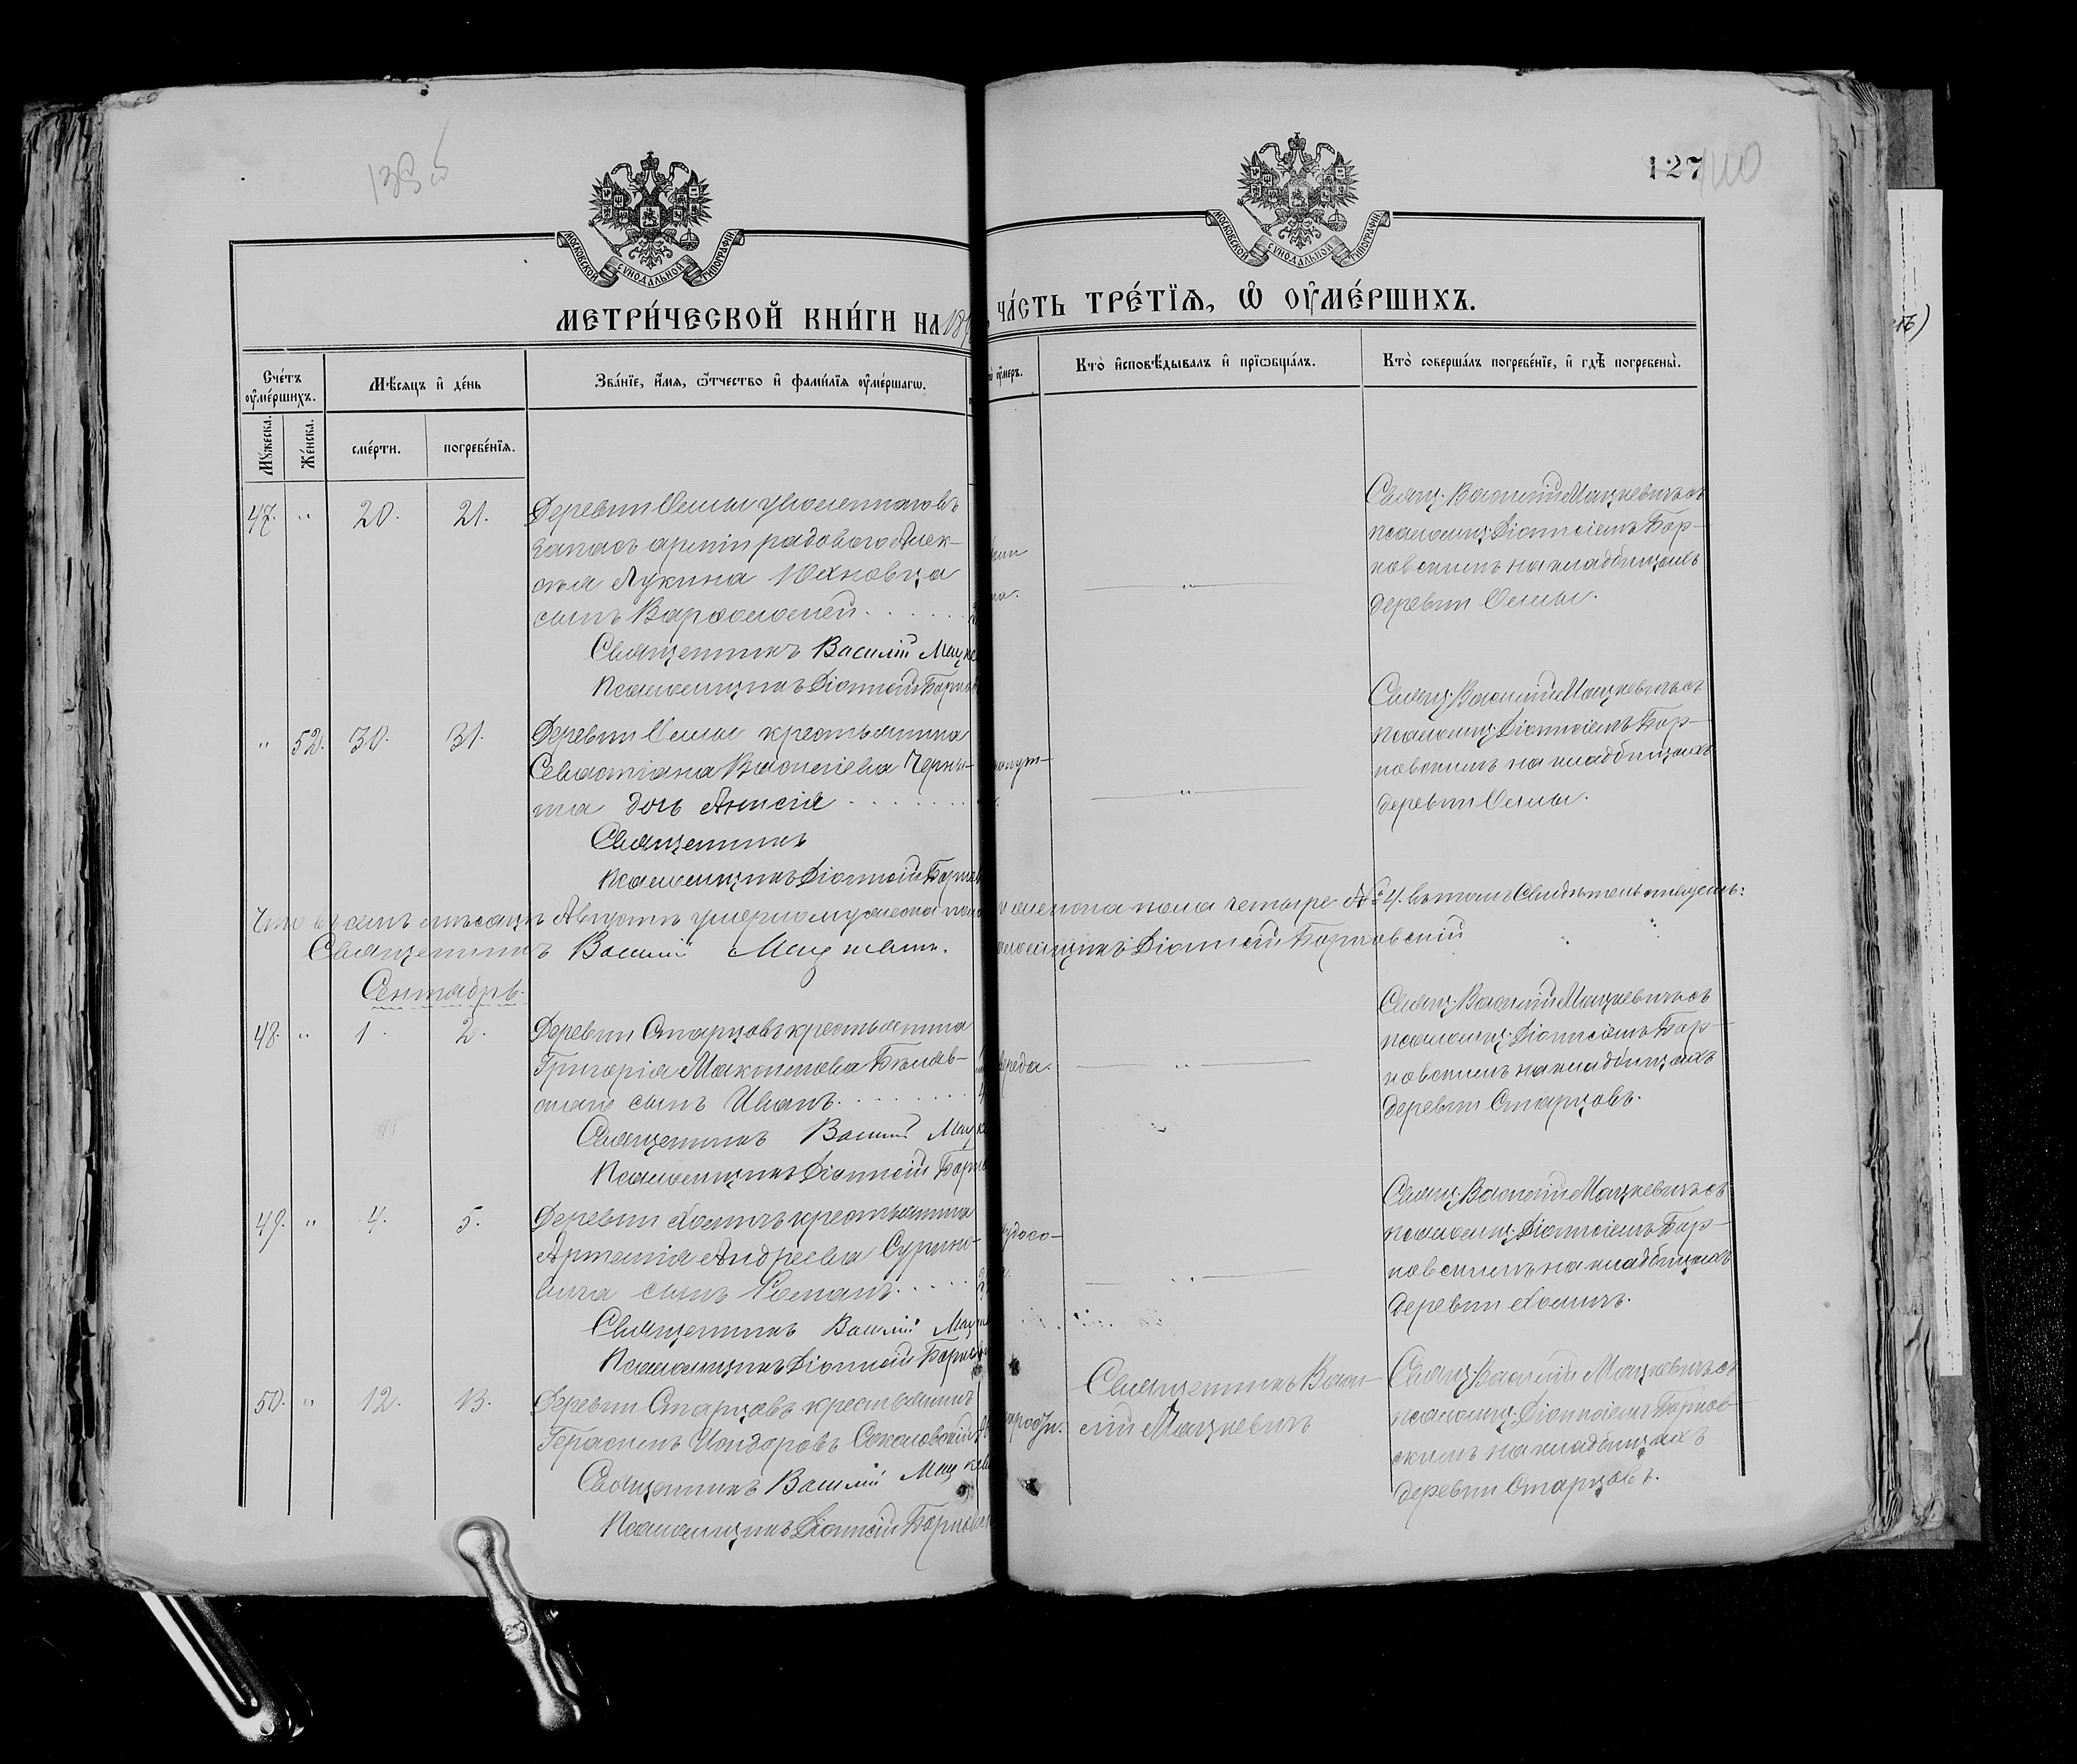 139 об
127
140
МОСКОВСКОЙ СѴНОДАЛЬНОЙ ТИПОГРАФІИ
МОСКОВСКОЙ СѴНОДАЛЬНОЙ ТИПОГРАФІИ
МЕТРИ́ЧЕСКОЙ КНИ́ГИ НА 189
ЧА́СТЬ ТРЕ́ТЇѦ, Ѡ҆ ОУ҆МЕ́РШИХЪ.
Сче́тъ оу҆ме́ршихъ.
Мѣ́сяцъ и҆ де́нь
Зва́нїе, и҆́мя, ѻ҆́тчество и҆ фами́лїя оу҆ме́ршагѡ.
оу҆́меръ.
Кто̀ и҆сповѣ́дывалъ и҆ прїѡбща́лъ.
Кто̀ соверша́лъ погребе́нїе, и҆ гдѣ̀ погребены̀.
Мꙋ́жеска.
Же́нска.
сме́рти.
погребе́нїя.
47. " 20. 21.
Деревни Осмы уволеннаго въ
запасъ арміи рядового Алек-
сѣя Лукина Юхновца
сынъ Варѳоломей
Священникъ Василій Мацке
Псаломщикъ Діонисій Борков
Свящ. Василій Мацкевичъ съ
псаломщ. Діонисіемъ Бор-
ковскимъ на кладбищахъ
деревни Осмы.
" 52. 30. 31.
Деревни Осмы крестьянина
Севастіана Василіева Черны-
ша дочь Анисія
Священникъ
Псаломщикъ Діонисій Борков
Свящ. Василій Мацкевичъ съ
псаломщ. Діонисіемъ Бор-
ковскимъ на кладбищахъ
деревни Осмы.
Что въ семъ мѣсяцѣ Августѣ умерло мужеска пола
и женска пола четыре № 4. въ томъ свидѣтельствуемъ:
Священникъ Василій Мацкевичъ.
псаломщикъ Діонисій Борковскій
Сентябрь.
48. " 1. 2.
Деревни Старцовъ крестьянина
Григорія Максимова Бѣляв-
скаго сынъ Иванъ
Священникъ Василій Мацке
Псаломщикъ Діонисій Борко
Свящ. Василій Мацкевичъ съ
псаломщ. Діонисіемъ Бор-
ковскимъ на кладбищахъ
деревни Старцовъ.
49. " 4. 5.
Деревни Хомичъ крестьянина
Артемія Андреева Сурино-
вича сынъ Романъ
Священникъ Василій Мацке
Псаломщикъ Діонисій Борков
Свящ. Василій Мацкевичъ съ
псаломщ. Діонисіемъ Бор-
ковскимъ на кладбищахъ
деревни Хомичъ.
50. " 12. 13.
Деревни Старцовъ крестьянинъ
Герасимъ Исидоровъ Соколовскій
Священникъ Василій Мацкев
Псаломщикъ Діонисій Борковск
Священникъ Васи-
лій Мацкевичъ
Свящ. Василій Мацкевичъ съ
псаломщ. Діонисіемъ Борков-
скимъ на кладбищахъ
деревни Старцовъ.